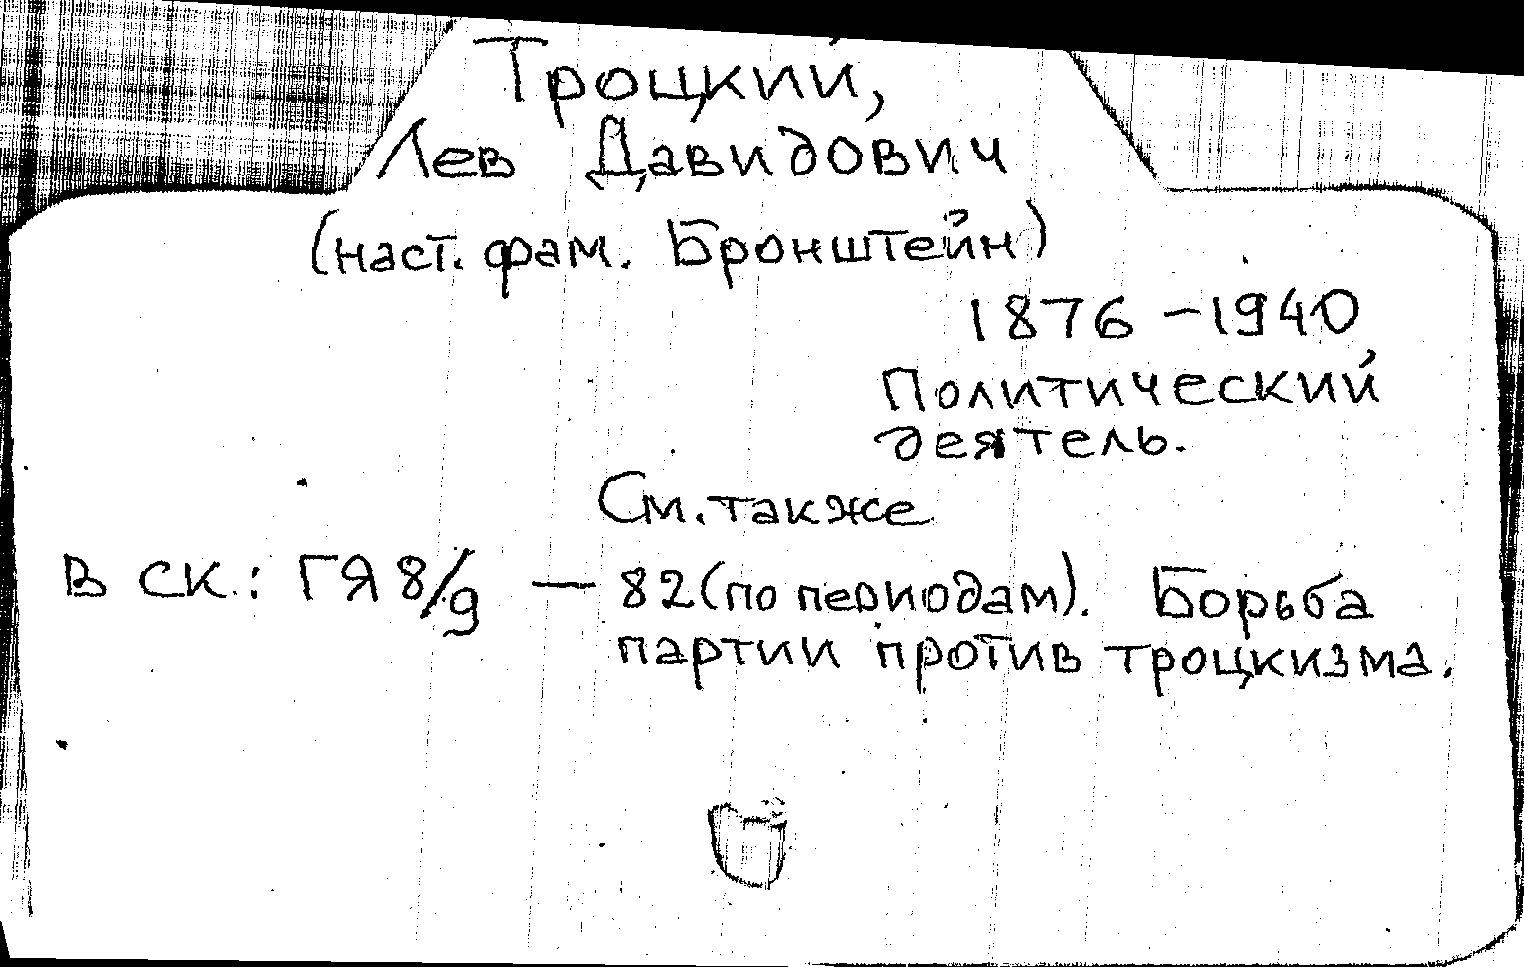 Троцкий,
Лев Давидович
(наст. фам. Бронштейн)
1876 - 1940
Политический
деятель.
См. также
В СК: ГЯ 8/9 — 82 (по периодам). Борьба
партии против троцкизма.